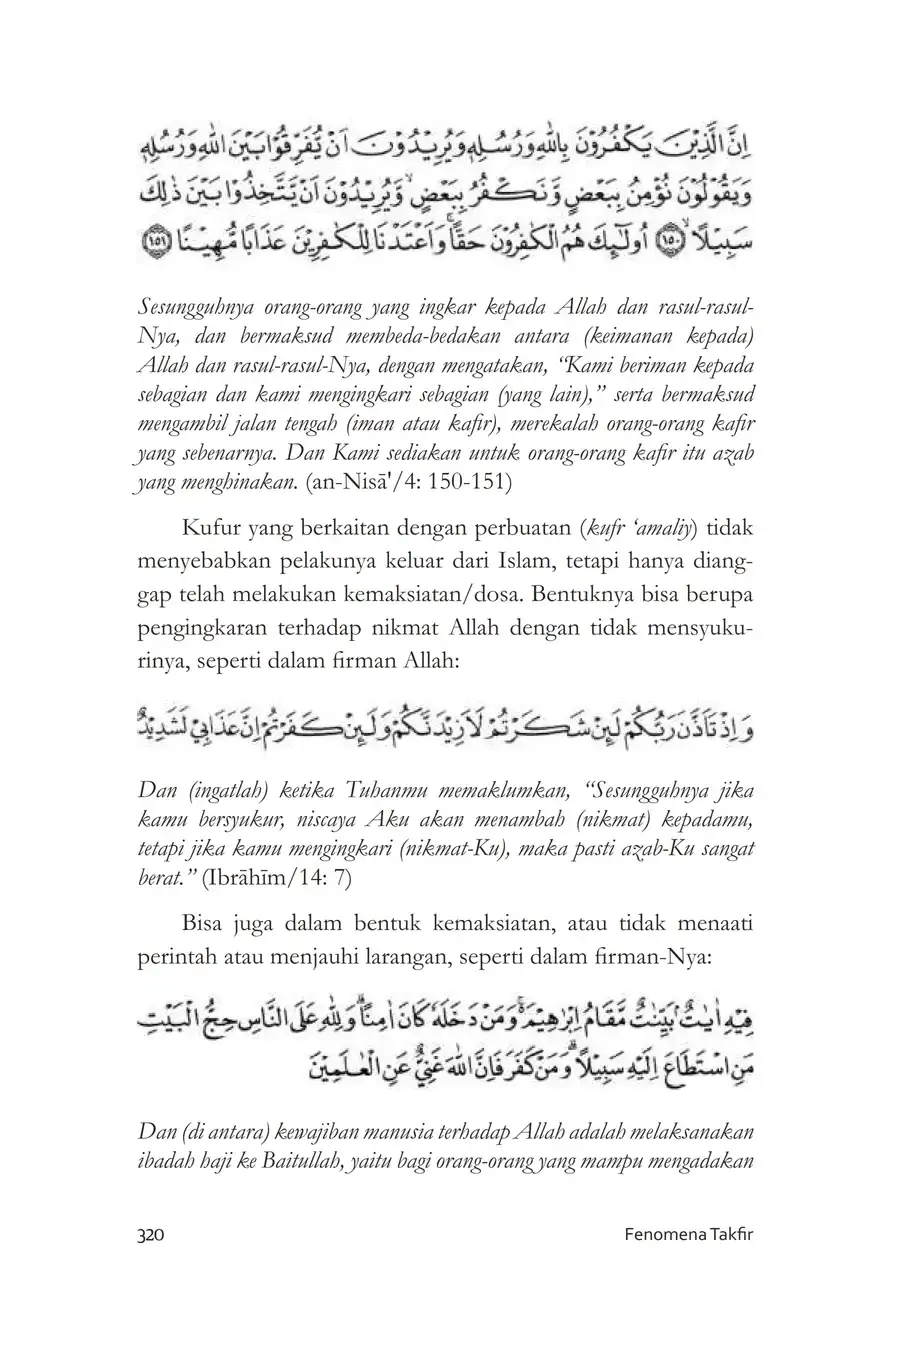 اِنَّ الَّذِيْنَ يَكْفُرُوْنَ بِاللّٰهِ وَرُسُلِهٖ وَيُرِيْدُوْنَ اَنْ يُّفَرِّقُوْا بَيْنَ اللّٰهِ وَرُسُلِهٖ
وَيَقُوْلُوْنَ نُؤْمِنُ بِبَعْضٍ وَّنَكْفُرُ بِبَعْضٍۙ وَّيُرِيْدُوْنَ اَنْ يَّتَّخِذُوْا بَيْنَ ذٰلِكَ
سَبِيْلًاۙ ﴿١٥٠﴾ اُولٰۤىِٕكَ هُمُ الْكٰفِرُوْنَ حَقًّاۚ وَاَعْتَدْنَا لِلْكٰفِرِيْنَ عَذَابًا مُّهِيْنًا ﴿١٥١﴾
Sesungguhnya orang-orang yang ingkar kepada Allah dan rasul-rasul-
Nya, dan bermaksud membeda-bedakan antara (keimanan kepada)
Allah dan rasul-rasul-Nya, dengan mengatakan, “Kami beriman kepada
sebagian dan kami mengingkari sebagian (yang lain),” serta bermaksud
mengambil jalan tengah (iman atau kafir), merekalah orang-orang kafir
yang sebenarnya. Dan Kami sediakan untuk orang-orang kafir itu azab
yang menghinakan. (an-Nisā'/4: 150-151)
Kufur yang berkaitan dengan perbuatan (kufr ‘amaliy) tidak
menyebabkan pelakunya keluar dari Islam, tetapi hanya diang-
gap telah melakukan kemaksiatan/dosa. Bentuknya bisa berupa
pengingkaran terhadap nikmat Allah dengan tidak mensyuku-
rinya, seperti dalam firman Allah:
وَاِذْ تَاَذَّنَ رَبُّكُمْ لَىِٕنْ شَكَرْتُمْ لَاَزِيْدَنَّكُمْ وَلَىِٕنْ كَفَرْتُمْ اِنَّ عَذَابِيْ لَشَدِيْدٌ
Dan (ingatlah) ketika Tuhanmu memaklumkan, “Sesungguhnya jika
kamu bersyukur, niscaya Aku akan menambah (nikmat) kepadamu,
tetapi jika kamu mengingkari (nikmat-Ku), maka pasti azab-Ku sangat
berat.” (Ibrāhīm/14: 7)
Bisa juga dalam bentuk kemaksiatan, atau tidak menaati
perintah atau menjauhi larangan, seperti dalam firman-Nya:
فِيْهِ اٰيٰتٌۢ بَيِّنٰتٌ مَّقَامُ اِبْرٰهِيْمَۚ وَمَنْ دَخَلَهٗ كَانَ اٰمِنًاۗ وَلِلّٰهِ عَلَى النَّاسِ حِجُّ الْبَيْتِ
مَنِ اسْتَطَاعَ اِلَيْهِ سَبِيْلًاۗ وَمَنْ كَفَرَ فَاِنَّ اللّٰهَ غَنِيٌّ عَنِ الْعٰلَمِيْنَ
Dan (di antara) kewajiban manusia terhadap Allah adalah melaksanakan
ibadah haji ke Baitullah, yaitu bagi orang-orang yang mampu mengadakan
320 Fenomena Takfir